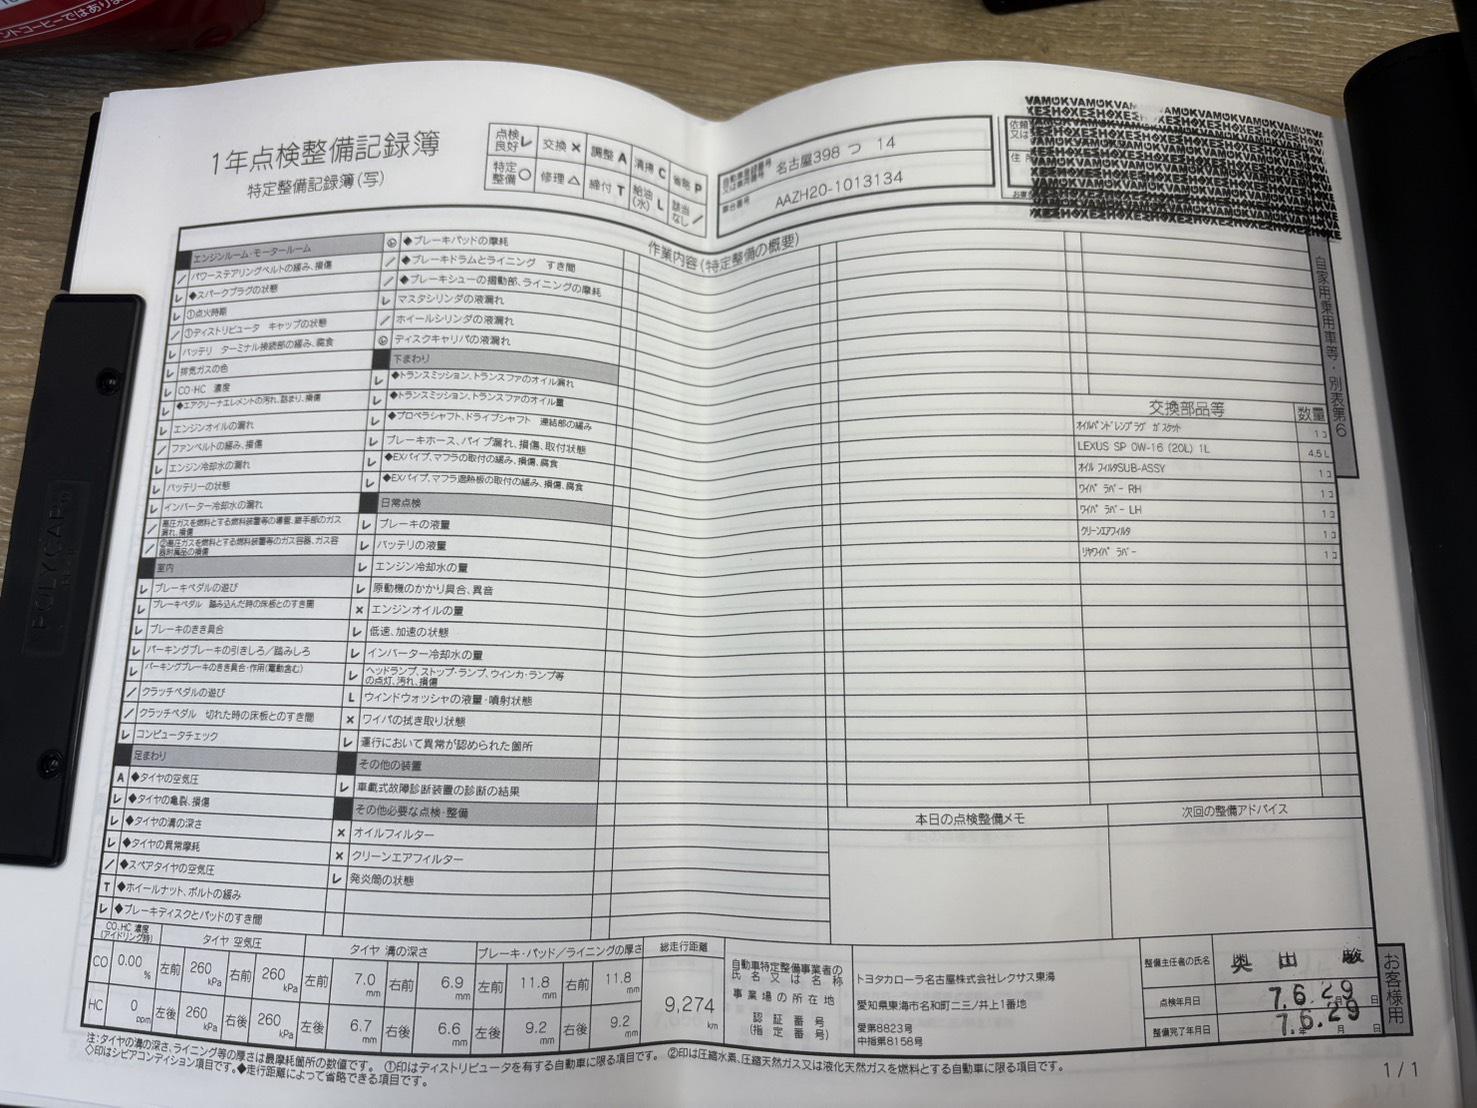 ントコーヒーではありま
1年点検整備記録簿
特定整備記録簿(写)
点検良好 レ 交換 × 調整 A 清掃 C 省略 P
特定整備 ○ 修理 △ 締付 T 給油(水) L 該当なし /
名古屋398 つ 14
車台番号 AAZH20-1013134
作業内容(特定整備の概要)
自家用乗用車等・別表第6
エンジンルーム・モータールーム
/ パワーステアリングベルトの緩み、損傷
レ ◆スパークプラグの状態
レ ①点火時期
/ ①ディストリビュータ キャップの状態
レ バッテリ ターミナル接続部の緩み、腐食
レ 排気ガスの色
レ CO・HC 濃度
レ ◆エアクリーナエレメントの汚れ、詰まり、損傷
レ エンジンオイルの漏れ
/ ファンベルトの緩み、損傷
レ エンジン冷却水の漏れ
レ バッテリーの状態
レ インバーター冷却水の漏れ
/ 高圧ガスを燃料とする燃料装置等の導管、継手部のガス漏れ、損傷
/ ②高圧ガスを燃料とする燃料装置等のガス容器、ガス容器附属品の損傷
室内
レ ブレーキペダルの遊び
レ ブレーキペダル 踏み込んだ時の床板とのすき間
レ ブレーキのきき具合
レ パーキングブレーキの引きしろ/踏みしろ
レ パーキングブレーキのきき具合・作用(電動含む)
/ クラッチペダルの遊び
/ クラッチペダル 切れた時の床板とのすき間
レ コンピュータチェック
足まわり
A ◆タイヤの空気圧
レ ◆タイヤの亀裂、損傷
レ ◆タイヤの溝の深さ
レ ◆タイヤの異常摩耗
/ ◆スペアタイヤの空気圧
T ◆ホイールナット、ボルトの緩み
レ ◆ブレーキディスクとパッドのすき間
◆ブレーキパッドの摩耗
/ ◆ブレーキドラムとライニング すき間
/ ◆ブレーキシューの摺動部、ライニングの摩耗
レ マスタシリンダの液漏れ
/ ホイールシリンダの液漏れ
ディスクキャリパの液漏れ
下まわり
レ ◆トランスミッション、トランスファのオイル漏れ
レ ◆トランスミッション、トランスファのオイル量
レ ◆プロペラシャフト、ドライブシャフト 連結部の緩み
レ ブレーキホース、パイプ漏れ、損傷、取付状態
レ ◆EXパイプ、マフラの取付の緩み、損傷、腐食
レ ◆EXパイプ、マフラ遮熱板の取付の緩み、損傷、腐食
日常点検
レ ブレーキの液量
レ バッテリの液量
レ エンジン冷却水の量
レ 原動機のかかり具合、異音
× エンジンオイルの量
レ 低速、加速の状態
レ インバーター冷却水の量
レ ヘッドランプ、ストップ・ランプ、ウィンカ・ランプ等の点灯、汚れ、損傷
L ウインドウォッシャの液量・噴射状態
× ワイパの拭き取り状態
レ 運行において異常が認められた箇所
その他の装置
レ 車載式故障診断装置の診断の結果
その他必要な点検・整備
× オイルフィルター
× クリーンエアフィルター
レ 発炎筒の状態
交換部品等 数量
オイルパンドレンプラグ ガスケット 1コ
LEXUS SP 0W-16 (20L) 1L 4.5L
オイル フィルタSUB-ASSY 1コ
ワイパ ラバー RH 1コ
ワイパ ラバー LH 1コ
クリーンエアフィルタ 1コ
リヤワイパ ラバー 1コ
本日の点検整備メモ
次回の整備アドバイス
CO、HC 濃度(アイドリング時) タイヤ 空気圧 タイヤ 溝の深さ ブレーキ・パッド/ライニングの厚さ 総走行距離
CO 0.00 % 左前 260 kPa 右前 260 kPa 左前 7.0 mm 右前 6.9 mm 左前 11.8 mm 右前 11.8 mm
HC 0 ppm 左後 260 kPa 右後 260 kPa 左後 6.7 mm 右後 6.6 mm 左後 9.2 mm 右後 9.2 mm
9,274 km
自動車特定整備事業者の氏名又は名称 トヨタカローラ名古屋株式会社レクサス東海
事業場の所在地 愛知県東海市名和町二三ノ井上1番地
認証番号 愛第8823号
(指定番号) 中指第8158号
整備主任者の氏名 奥田 駿
点検年月日 7.6.29
整備完了年月日 7.6.29
お客様用
注:タイヤの溝の深さ、ライニング等の厚さは最摩耗箇所の数値です。 ①印はディストリビュータを有する自動車に限る項目です。 ②印は圧縮水素、圧縮天然ガス又は液化天然ガスを燃料とする自動車に限る項目です。
◇印はシビアコンディション項目です。◆走行距離によって省略できる項目です。
1 / 1